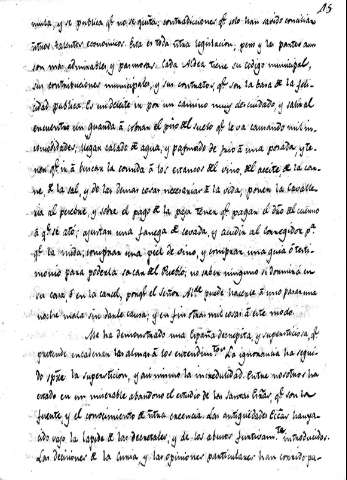 15
mula, y se publica qᵉ no se quita; contradicciones qᵉ solo han sabido conciliar
ntros talentos economicos. Esta es toda ntra legislacion; pero y las partes aun
son mas admirables y pasmosas. Cada aldea tiene su codigo municipal,
sus contribuciones municipales, y sus contratos, qᵉ son la base de la feli-
cidad publica. Es un deleite ir por un camino muy descuidado, y salir al
encuentro un guarda á cobrar el piso del suelo qᵉ le va causando mil in-
comodidades; llegan calado de agua, y pasmado de frio á una posada, y te-
ner qᵉ ir á buscar la comida á los estancos del vino, del aceite de la car-
ne, de la sal, y de las demas cosas necesarias á la vida; ponen la Caballe-
ria al pesebre, y sobre el pago de la paja tener qᵉ pagar el dro del
á qᵉ se ató; ajustan una fanega de cevada, y acudir al corregidor pᵃ
qᵉ la mida; comprar una piel de vino, y comprar una guia ó testi-
monio para poderla sacar del Pueblo; no saber ninguno si dormirá en
su casa ó en la carcel, porqᵉ el señor Alᵈᵉ puede hacerle á uno pasar una
noche mala sin darle causa; y en fin otras mil cosas á este modo.
Me ha demostrado una España decrepita, y supersticiosa, qᵉ
pretende encadenar las almas á los entendimᵗᵒˢ. La ignorancia ha segui-
do spᵣᵉ la supersticion, y asi mismo la incredulidad. Entre nosotros ha
estado en un miserable abandono el estudio de las santas Esᵣᵃˢ, qᵉ son la
fuente y el conocimiento de ntra creencia. Las antiguedades han ya-
cido vajo la lapida de las decretales, y de los abusos furtivamᵗᵉ introducidos.
Las decisiones de la Curia y las opiniones particulares han corrido pa-